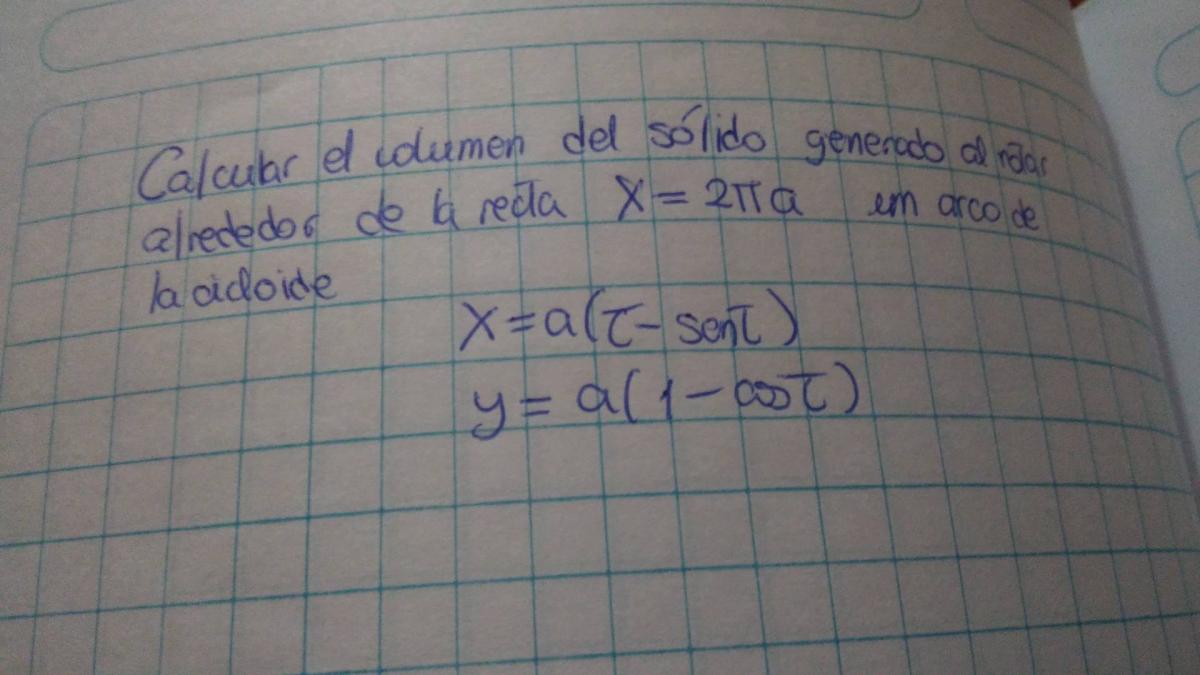 Calcular el volumen del sólido generado al rotar
alrededor de la recta X = 2πa un arco de
la cicloide
X = a(τ - senτ)
y = a(1 - cosτ)